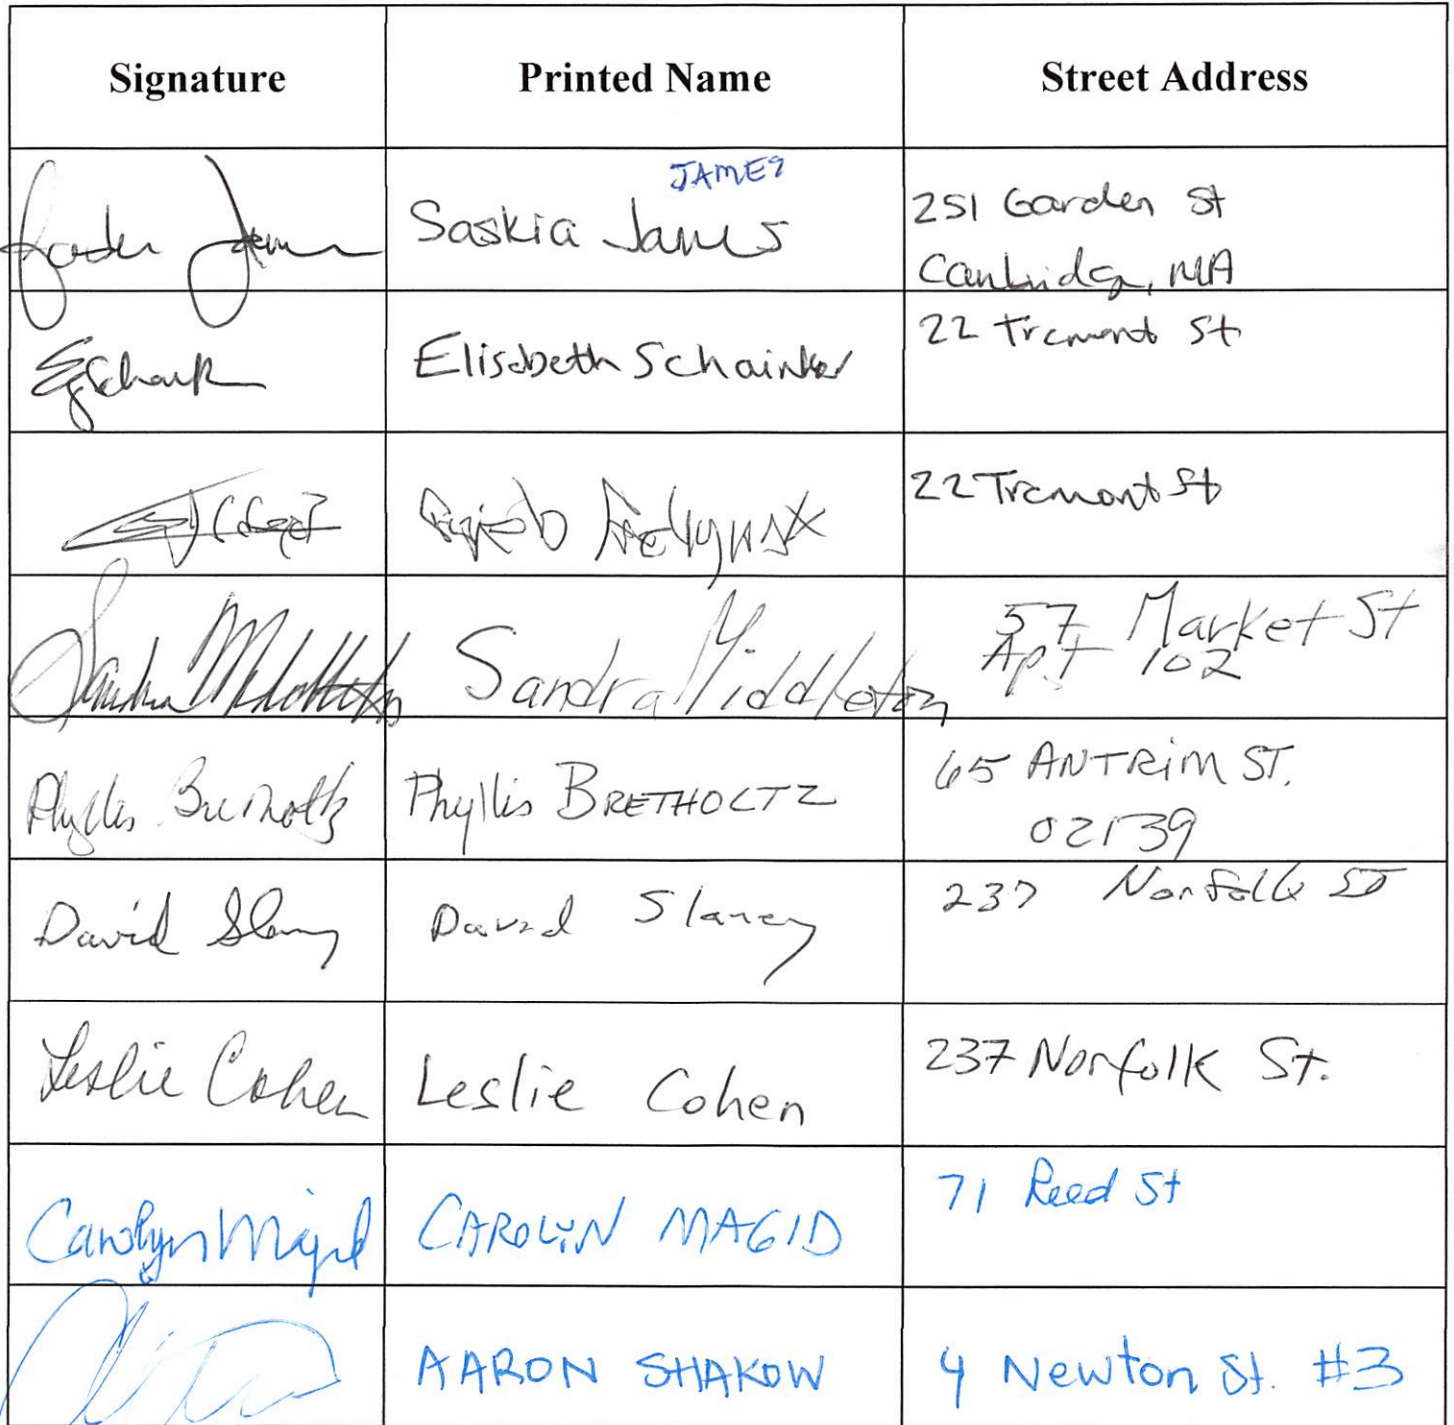 Signature Printed Name Street Address
JAMES
Saskia James 251 Garden St
Cambridge, MA
Elisabeth Schainker 22 Tremont St
22 Tremont St
Sandra Middleton Sandra Middleton 57 Market St
Apt 102
Phyllis Bretholtz Phyllis BRETHOLTZ 65 ANTRIM ST.
02139
David Slaney David Slaney 237 Norfolk St
Leslie Cohen Leslie Cohen 237 Norfolk St.
Carolyn Magid CAROLYN MAGID 71 Reed St
AARON SHAKOW 4 Newton St. #3